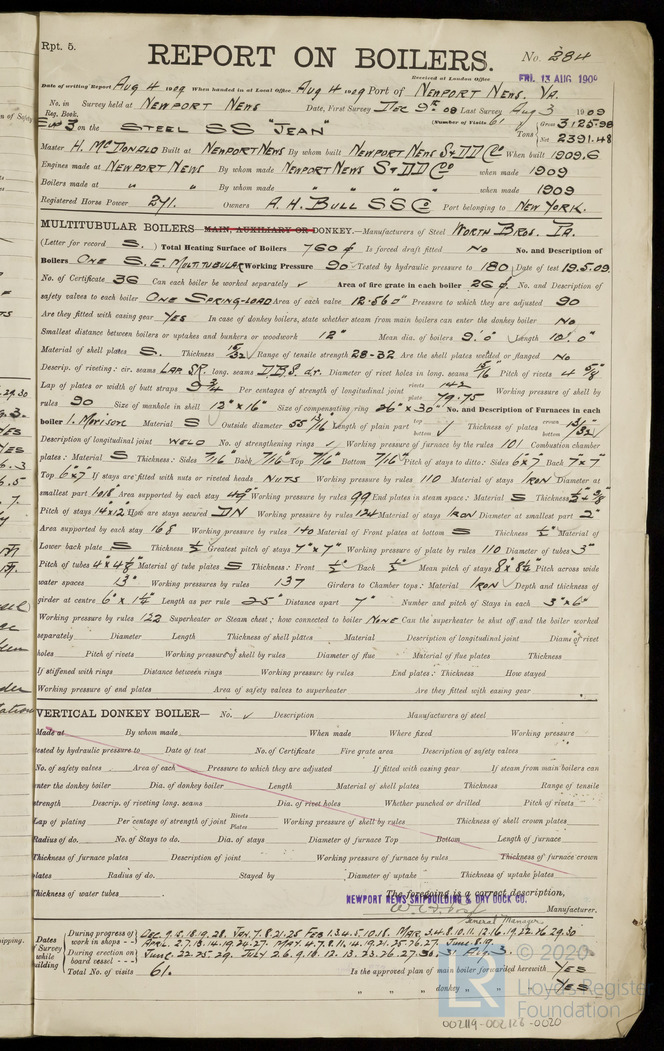 Rpt. 5.
REPORT ON BOILERS.
No. 284
Received at London Office FRI. 13 AUG 1909
Date of writing Report Aug 4 1909 When handed in at Local Office Aug 4 1909 Port of Newport News, Va.
No. in Reg. Book. Survey held at Newport News Date, First Survey Dec 9th 08 Last Survey Aug 3 1909
(Number of Visits 61)
3 on the Steel SS "Jean" Tons Gross 3125.98 Net 2391.48
Master H. McDonald Built at Newport News By whom built Newport News S & DD Co When built 1909.6
Engines made at Newport News By whom made Newport News S & DD Co when made 1909
Boilers made at " " By whom made " " " " when made 1909
Registered Horse Power 271. Owners A. H. Bull SS Co Port belonging to New York.
MULTITUBULAR BOILERS MAIN, AUXILIARY OR DONKEY.—Manufacturers of Steel Worth Bros. Pa.
(Letter for record S.) Total Heating Surface of Boilers 760 Is forced draft fitted No No. and Description of
Boilers One S.E. Multitubular Working Pressure 90 Tested by hydraulic pressure to 180 Date of test 19.5.09.
No. of Certificate 36 Can each boiler be worked separately ✓ Area of fire grate in each boiler 26 No. and Description of
safety valves to each boiler One Spring-load Area of each valve 12.56 Pressure to which they are adjusted 90
Are they fitted with easing gear Yes In case of donkey boilers, state whether steam from main boilers can enter the donkey boiler No
Smallest distance between boilers or uptakes and bunkers or woodwork 12" Mean dia. of boilers 9'.0" Length 10'.0"
Material of shell plates S. Thickness 15/32 Range of tensile strength 28-32 Are the shell plates welded or flanged No
Descrip. of riveting: cir. seams Lap SR. long. seams D.B.S. d.r. Diameter of rivet holes in long. seams 15/16 Pitch of rivets 4 5/8
Lap of plates or width of butt straps 9 3/4 Per centages of strength of longitudinal joint rivets 142 plate 79.75 Working pressure of shell by
rules 90 Size of manhole in shell 12" x 16" Size of compensating ring 26" x 30" No. and Description of Furnaces in each
boiler 1. Morison Material S Outside diameter 55 13/16 Length of plain part top bottom ✓ Thickness of plates crown bottom 13/32
Description of longitudinal joint Weld No. of strengthening rings ✓ Working pressure of furnace by the rules 101 Combustion chamber
plates: Material S Thickness: Sides 7/16" Back 7/16" Top 7/16" Bottom 7/16" Pitch of stays to ditto: Sides 6"x7" Back 7"x7"
Top 6"x7" If stays are fitted with nuts or riveted heads Nuts Working pressure by rules 110 Material of stays Iron Diameter at
smallest part Area supported by each stay 49" Working pressure by rules 99 End plates in steam space: Material S Thickness
Pitch of stays 14x12 How are stays secured DN Working pressure by rules 124 Material of stays Iron Diameter at smallest part 2"
Area supported by each stay 168 Working pressure by rules 140 Material of Front plates at bottom S Thickness 1/2" Material of
Lower back plate S Thickness 1/2 Greatest pitch of stays 7"x7" Working pressure of plate by rules 110 Diameter of tubes 3"
Pitch of tubes 4"x4 1/8 Material of tube plates S Thickness: Front 1/2" Back 1/2" Mean pitch of stays 8"x8 1/2" Pitch across wide
water spaces 13" Working pressures by rules 137 Girders to Chamber tops: Material Iron Depth and thickness of
girder at centre 6"x1 1/2" Length as per rule 25" Distance apart 7" Number and pitch of Stays in each 3"x6"
Working pressure by rules 122 Superheater or Steam chest; how connected to boiler None Can the superheater be shut off and the boiler worked
separately Diameter Length Thickness of shell plates Material Description of longitudinal joint Diam. of rivet
holes Pitch of rivets Working pressure of shell by rules Diameter of flue Material of flue plates Thickness
If stiffened with rings Distance between rings Working pressure by rules End plates: Thickness How stayed
Working pressure of end plates Area of safety valves to superheater Are they fitted with easing gear
VERTICAL DONKEY BOILER— No. ✓ Description Manufacturers of steel
Made at By whom made When made Where fixed Working pressure
tested by hydraulic pressure to Date of test No. of Certificate Fire grate area Description of safety valves
No. of safety valves Area of each Pressure to which they are adjusted If fitted with easing gear If steam from main boilers can
enter the donkey boiler Dia. of donkey boiler Length Material of shell plates Thickness Range of tensile
strength Descrip. of riveting long. seams Dia. of rivet holes Whether punched or drilled Pitch of rivets
Lap of plating Per centage of strength of joint Rivets Plates Working pressure of shell by rules Thickness of shell crown plates
Radius of do. No. of Stays to do. Dia. of stays Diameter of furnace Top Bottom Length of furnace
Thickness of furnace plates Description of joint Working pressure of furnace by rules Thickness of furnace crown
plates Radius of do. Stayed by Diameter of uptake Thickness of uptake plates
Thickness of water tubes
The foregoing is a correct description,
NEWPORT NEWS SHIPBUILDING & DRY DOCK CO.
Manufacturer.
General Manager
Dates of Survey while building
During progress of work in shops - - Dec. 9.5.18.19.28. Jan. 7.8.21.25 Feb 1.3.4.5.10.18. Mar. 3.4.8.10.11.12.16.19.22.26.29.30
April. 2.7.13.14.19.24.27. May. 4.7.8.11.14.19.21.25.26.27. June. 8.19.
During erection on board vessel - - - June. 22.25.29. July 2.6.9.10.12.13.23.26.27.30.31. Aug. 3.
Total No. of visits 61. Is the approved plan of main boiler forwarded herewith Yes
" " " donkey " " " Yes
© 2020
Lloyd's Register
Foundation
002119-002126-0020